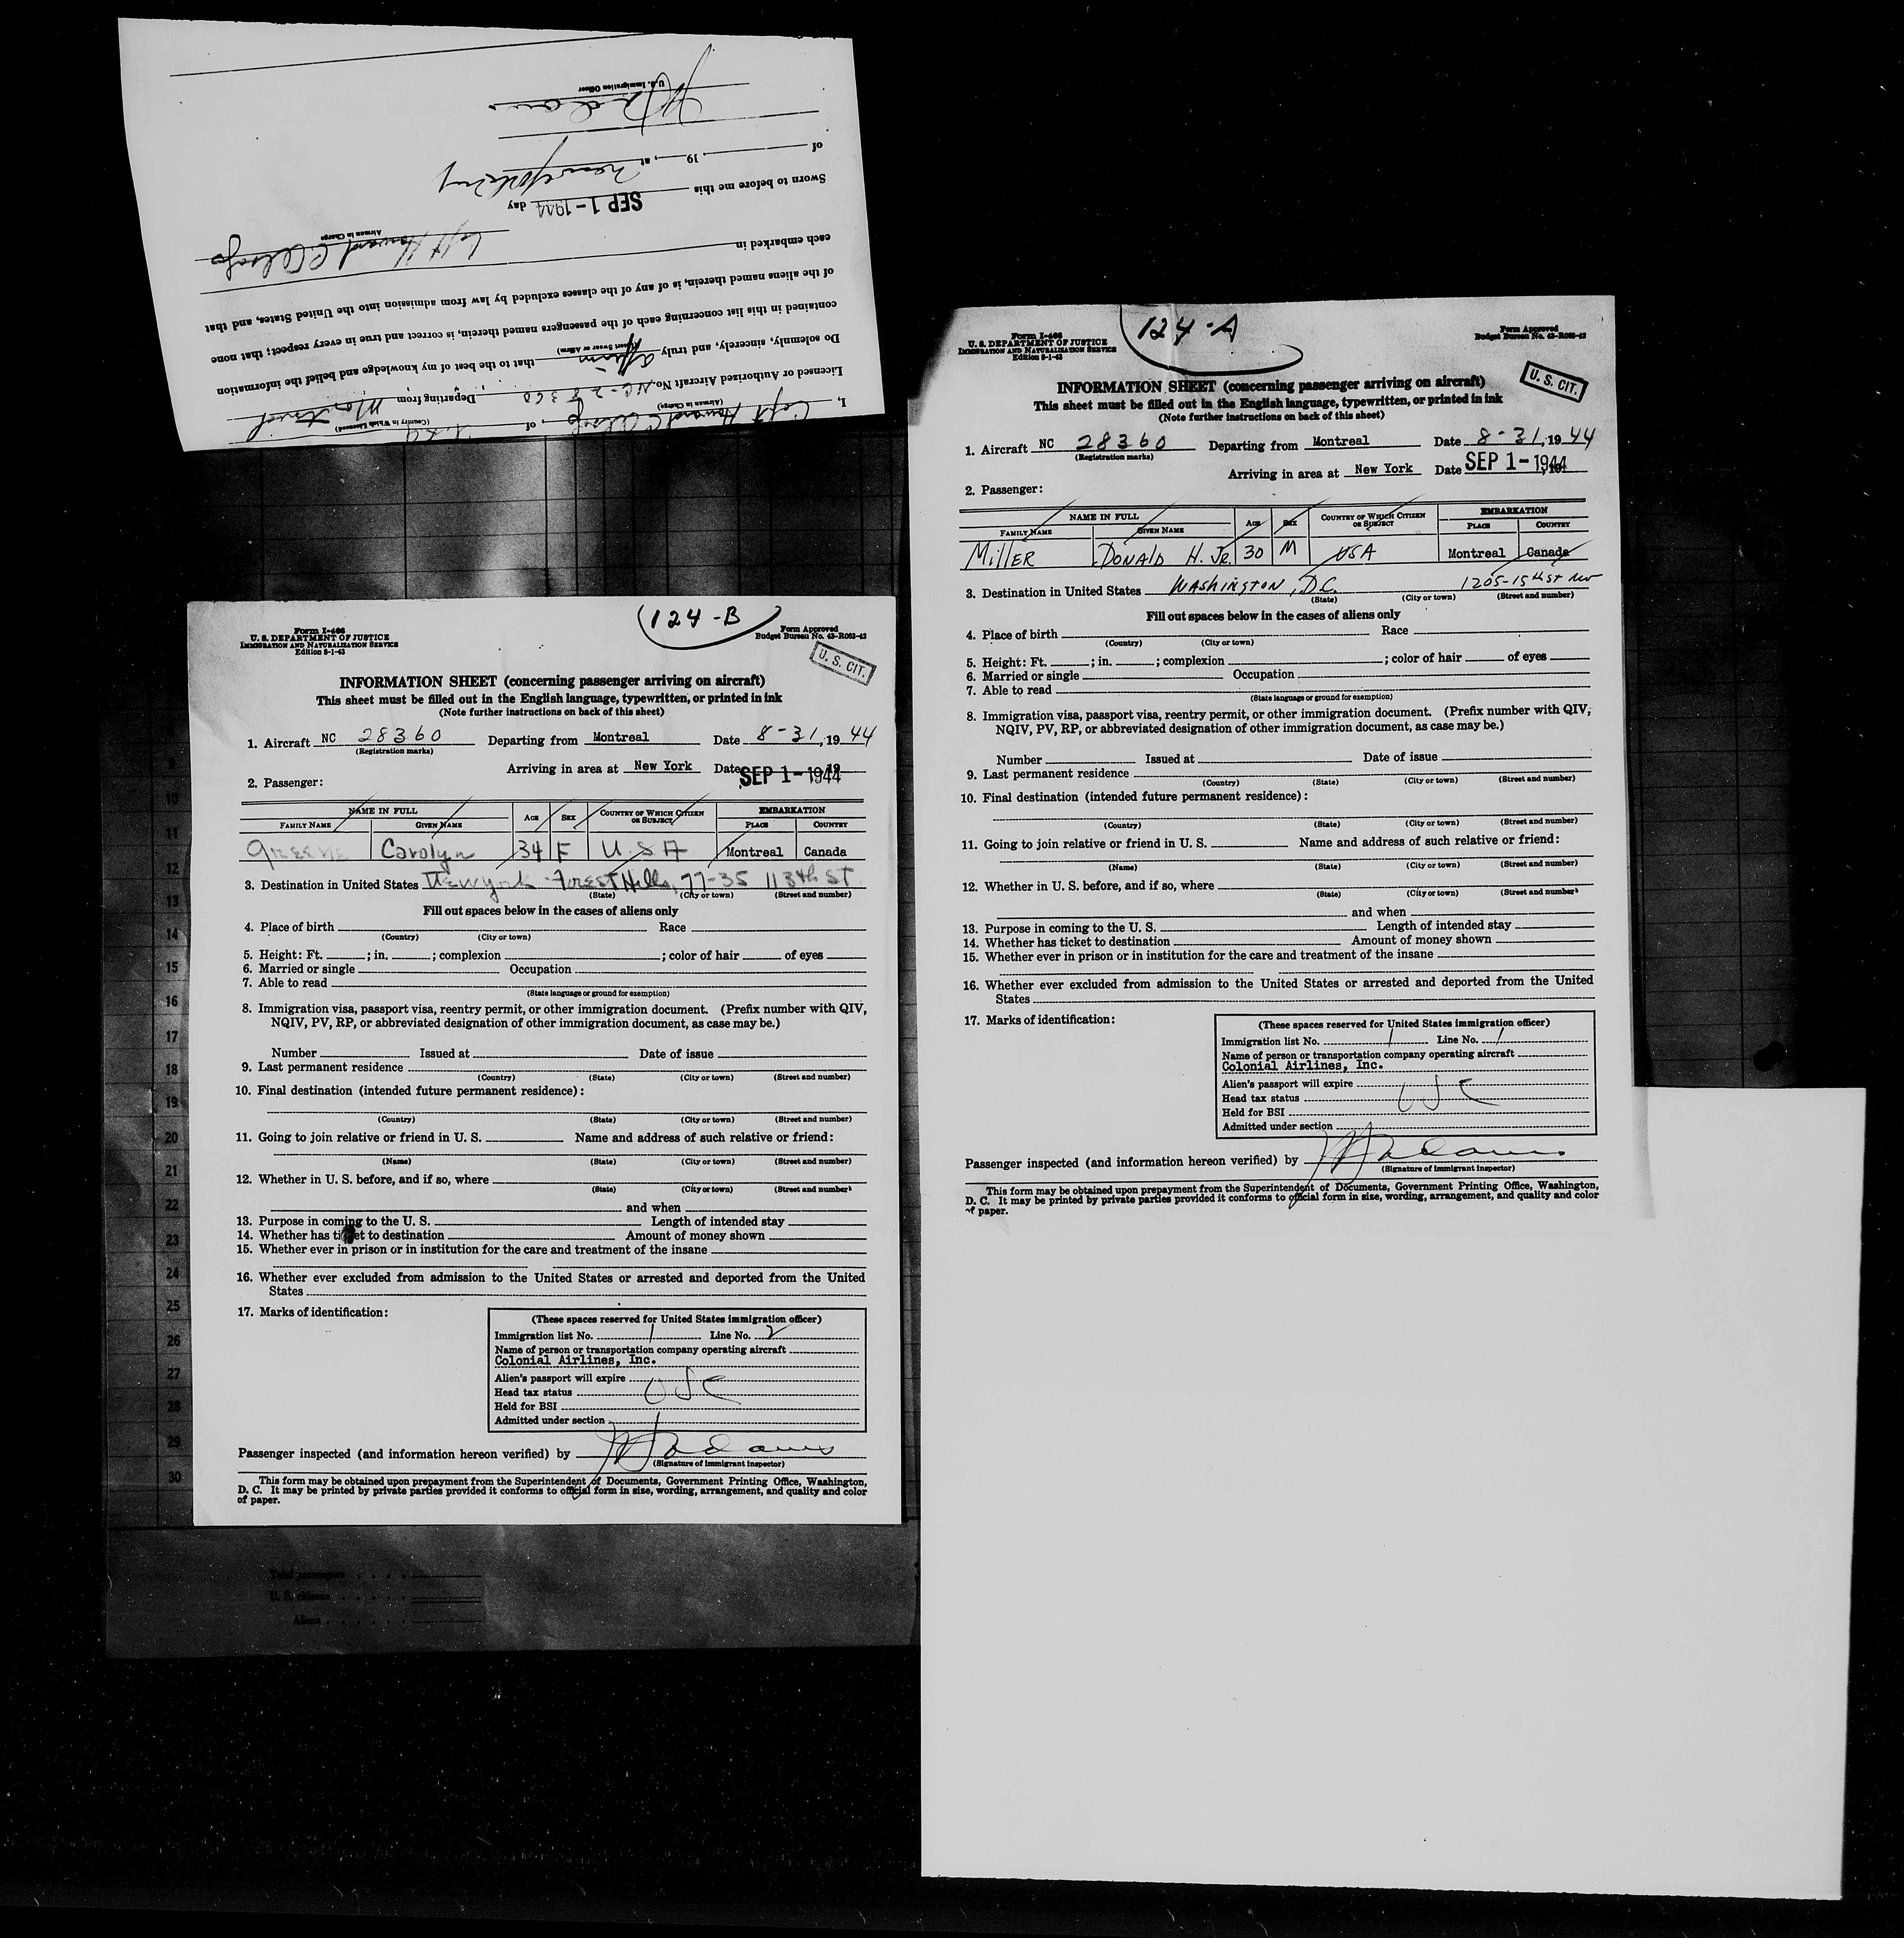 I, Capt Howard C , of U.S.A
(Airman in Charge) (Country in Which Licensed)
Licensed or Authorized Aircraft No. NC-28360, Departing from Montreal
Do solemnly, sincerely, and truly affirm that to the best of my knowledge and belief the information
contained in this list concerning each of the passengers named therein, is correct and true in every respect; that none
of the aliens named therein, is of any of the classes excluded by law from admission into the United States, and that
each embarked in
Capt Howard C
Airman in Charge
Sworn to before me this SEP 1-1944 day
of , 19 , at
U.S. Immigration Officer
124-B
Form I-466
U. S. DEPARTMENT OF JUSTICE
IMMIGRATION AND NATURALIZATION SERVICE
Edition 8-1-43
Form Approved
Budget Bureau No. 43-R063-42
U. S. CIT.
INFORMATION SHEET (concerning passenger arriving on aircraft)
This sheet must be filled out in the English language, typewritten, or printed in ink
(Note further instructions on back of this sheet)
1. Aircraft NC 28360 Departing from Montreal Date 8-31, 1944
(Registration marks)
Arriving in area at New York Date SEP 1-1944 19
2. Passenger:
NAME IN FULL AGE SEX COUNTRY OF WHICH CITIZEN OR SUBJECT EMBARKATION
FAMILY NAME GIVEN NAME PLACE COUNTRY
Greene Carolyn 34 F U.S.A Montreal Canada
3. Destination in United States New York Forest Hills, 77-35 113th ST
(State) (City or town) (Street and number)
Fill out spaces below in the cases of aliens only
4. Place of birth Race
(Country) (City or town)
5. Height: Ft. ; in. ; complexion ; color of hair of eyes
6. Married or single Occupation
7. Able to read
(State language or ground for exemption)
8. Immigration visa, passport visa, reentry permit, or other immigration document. (Prefix number with QIV,
NQIV, PV, RP, or abbreviated designation of other immigration document, as case may be.)
Number Issued at Date of issue
9. Last permanent residence
(Country) (State) (City or town) (Street and number)
10. Final destination (intended future permanent residence):
(Country) (State) (City or town) (Street and number)
11. Going to join relative or friend in U. S. Name and address of such relative or friend:
(Name) (State) (City or town) (Street and number)
12. Whether in U. S. before, and if so, where
(State) (City or town) (Street and number)
and when
13. Purpose in coming to the U. S. Length of intended stay
14. Whether has ticket to destination Amount of money shown
15. Whether ever in prison or in institution for the care and treatment of the insane
16. Whether ever excluded from admission to the United States or arrested and deported from the United
States
17. Marks of identification:
(These spaces reserved for United States immigration officer)
Immigration list No. 1 Line No. 2
Name of person or transportation company operating aircraft
Colonial Airlines, Inc.
Alien's passport will expire
Head tax status USC
Held for BSI
Admitted under section
Passenger inspected (and information hereon verified) by
(Signature of immigrant inspector)
This form may be obtained upon prepayment from the Superintendent of Documents, Government Printing Office, Washington,
D. C. It may be printed by private parties provided it conforms to official form in size, wording, arrangement, and quality and color
of paper.
124-A
Form I-466
U. S. DEPARTMENT OF JUSTICE
IMMIGRATION AND NATURALIZATION SERVICE
Edition 8-1-43
Form Approved
Budget Bureau No. 43-R063-42
U. S. CIT.
INFORMATION SHEET (concerning passenger arriving on aircraft)
This sheet must be filled out in the English language, typewritten, or printed in ink
(Note further instructions on back of this sheet)
1. Aircraft NC 28360 Departing from Montreal Date 8-31, 1944
(Registration marks)
Arriving in area at New York Date SEP 1-1944
2. Passenger:
NAME IN FULL AGE SEX COUNTRY OF WHICH CITIZEN OR SUBJECT EMBARKATION
FAMILY NAME GIVEN NAME PLACE COUNTRY
MILLER DONALD H. JR. 30 M USA Montreal Canada
3. Destination in United States WASHINGTON, D.C. 1205-15th ST NW
(State) (City or town) (Street and number)
Fill out spaces below in the cases of aliens only
4. Place of birth Race
(Country) (City or town)
5. Height: Ft. ; in. ; complexion ; color of hair of eyes
6. Married or single Occupation
7. Able to read
(State language or ground for exemption)
8. Immigration visa, passport visa, reentry permit, or other immigration document. (Prefix number with QIV,
NQIV, PV, RP, or abbreviated designation of other immigration document, as case may be.)
Number Issued at Date of issue
9. Last permanent residence
(Country) (State) (City or town) (Street and number)
10. Final destination (intended future permanent residence):
(Country) (State) (City or town) (Street and number)
11. Going to join relative or friend in U. S. Name and address of such relative or friend:
(Name) (State) (City or town) (Street and number)
12. Whether in U. S. before, and if so, where
(State) (City or town) (Street and number)
and when
13. Purpose in coming to the U. S. Length of intended stay
14. Whether has ticket to destination Amount of money shown
15. Whether ever in prison or in institution for the care and treatment of the insane
16. Whether ever excluded from admission to the United States or arrested and deported from the United
States
17. Marks of identification:
(These spaces reserved for United States immigration officer)
Immigration list No. 1 Line No. 1
Name of person or transportation company operating aircraft
Colonial Airlines, Inc.
Alien's passport will expire
Head tax status USC
Held for BSI
Admitted under section
Passenger inspected (and information hereon verified) by
(Signature of immigrant inspector)
This form may be obtained upon prepayment from the Superintendent of Documents, Government Printing Office, Washington,
D. C. It may be printed by private parties provided it conforms to official form in size, wording, arrangement, and quality and color
of paper.
9
10
11
12
13
14
15
16
17
18
19
20
21
22
23
24
25
26
27
28
29
30
Total passengers
U. S. citizens
Aliens